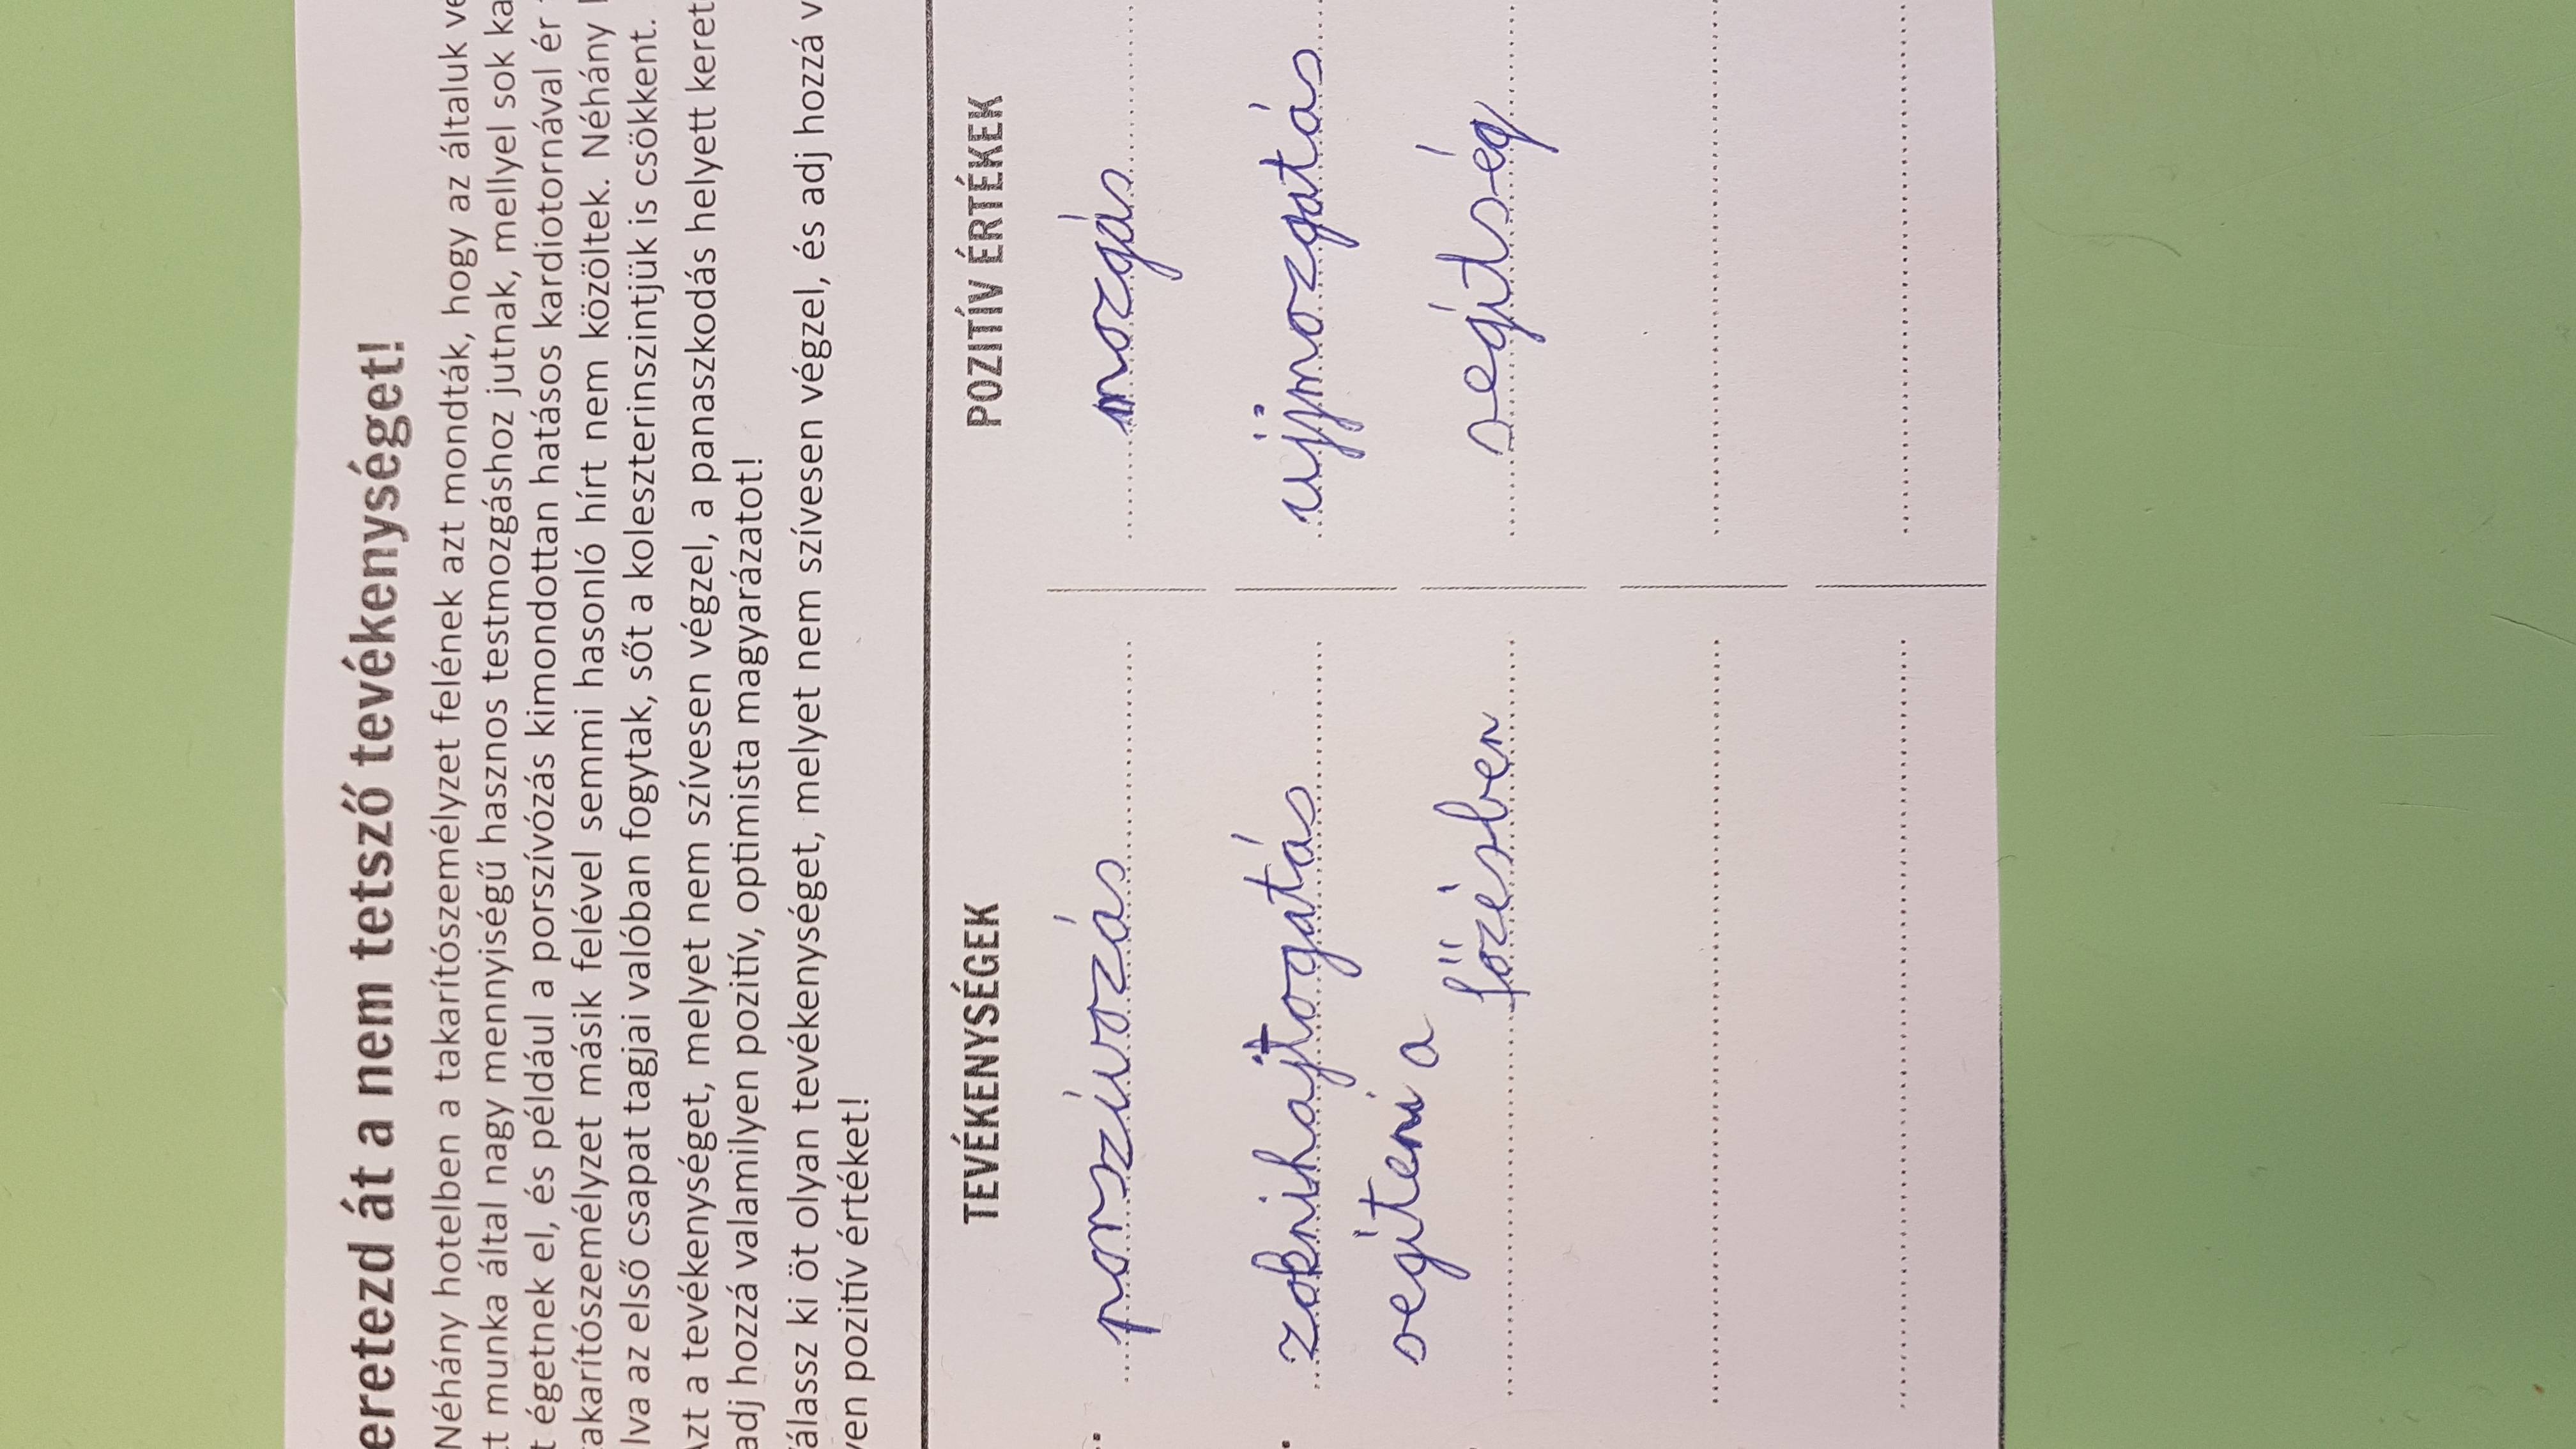 eretezd át a nem tetsző tevékenységet!
Néhány hotelben a takarítószemélyzet felének azt mondták, hogy az általuk
munka által nagy mennyiségű hasznos testmozgáshoz jutnak, mellyel sok
égetnek el, és például a porszívózás kimondottan hatásos kardiotornával ér
takarítószemélyzet másik felével semmi hasonló hírt nem közöltek. Néhány
lva az első csapat tagjai valóban fogytak, sőt a koleszterinszintjük is csökkent.
Azt a tevékenységet, melyet nem szívesen végzel, a panaszkodás helyett keret
adj hozzá valamilyen pozitív, optimista magyarázatot!
álassz ki öt olyan tevékenységet, melyet nem szívesen végzel, és adj hozzá v
yen pozitív értéket!
TEVÉKENYSÉGEK POZITÍV ÉRTÉKEK
porszívozás mozgás
zoknihajtogatás ujjmozgatás
segíteni a
főzésben segítség